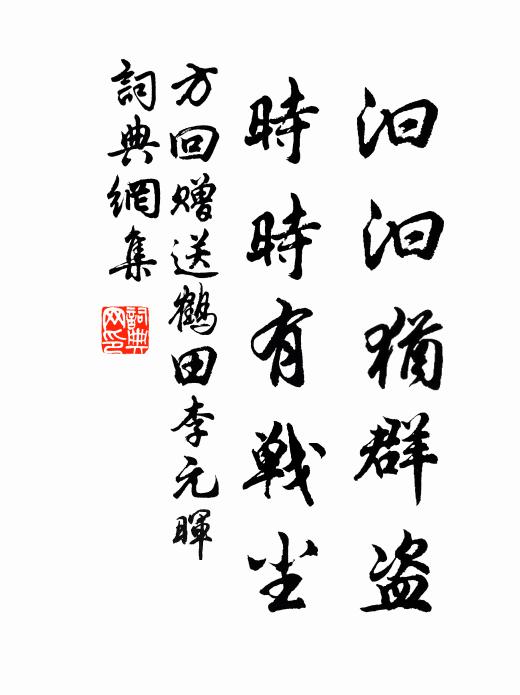 汩汩猶群盗
時時有戰尘
方回贈送鶴田李元暉
詞典網集
詞典网印